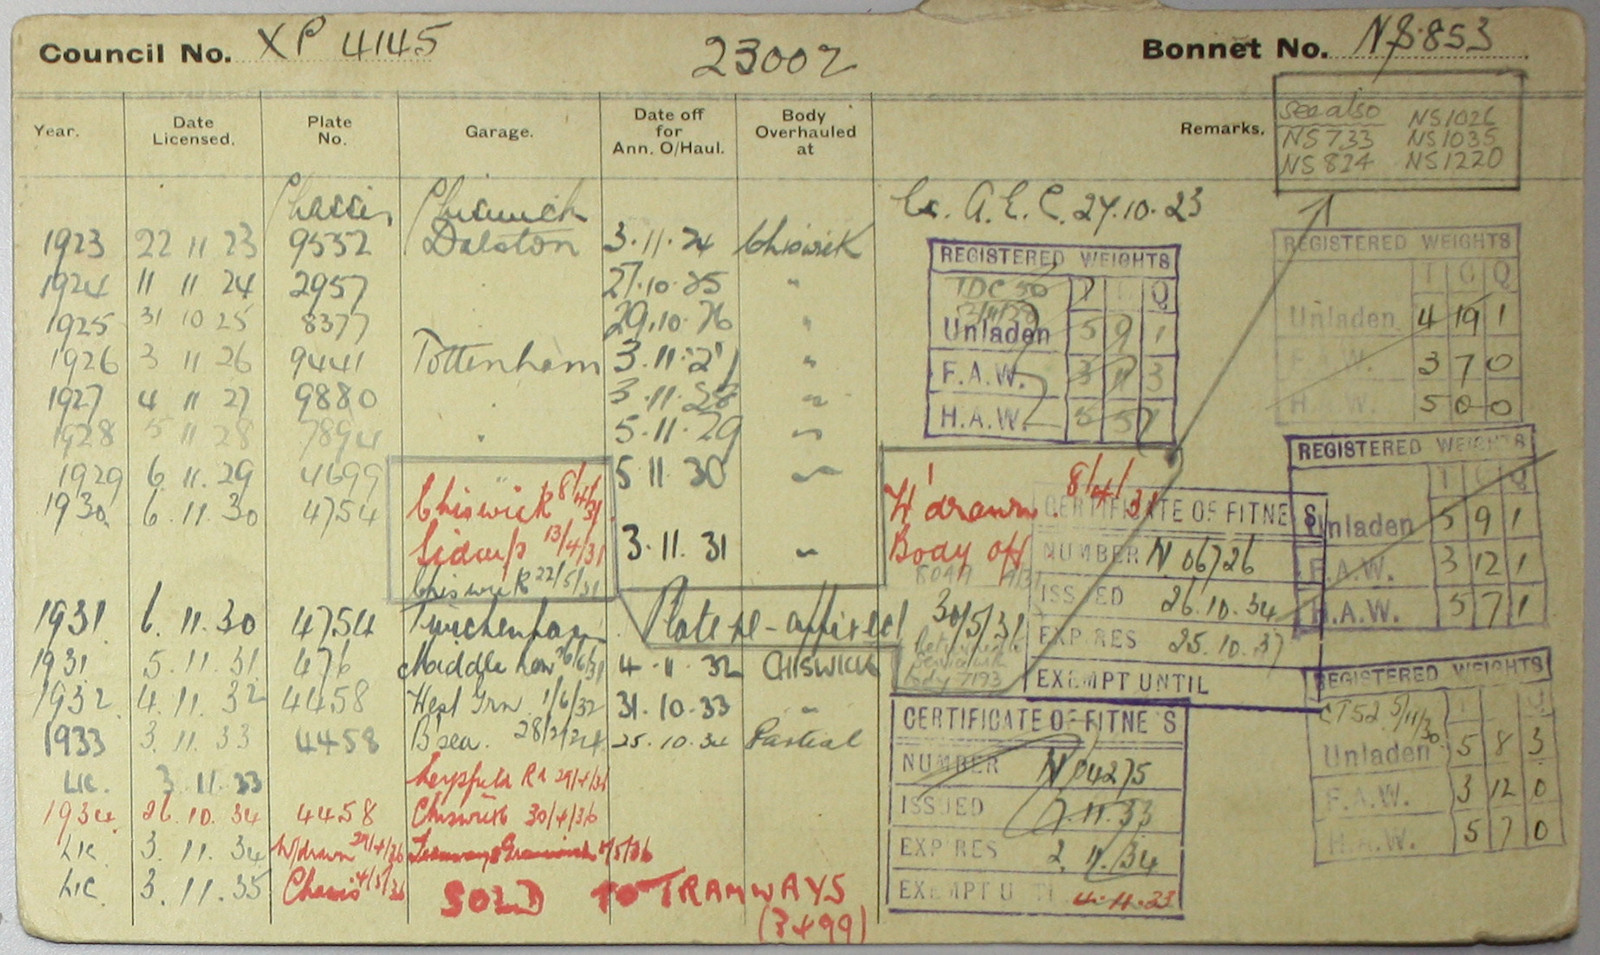 Council No. XP 4145 23002 Bonnet No. NS.853
see also
NS733 NS1026
NS824 NS1035
NS1220
Year. Date Licensed. Plate No. Garage. Date off for Ann. O/Haul. Body Overhauled at Remarks.
Chassis Chiswick Ex. A.E.C. 24.10.23
1923 22 11 23 9532 Dalston 3.11.24 Chiswick
1924 11 11 24 2957 27.10.25 "
1925 31 10 25 8377 29.10.26 "
1926 3 11 26 9441 Tottenham 3.11.27 "
1927 4 11 27 9880 3.11.28 "
1928 5 11 28 7894 " 5.11.29 "
1929 6.11.29 4699 5.11.30 "
1930 6.11.30 4754 Chiswick R 8/4/31
Sidcup 13/4/31 3.11.31 "
Chiswick R 22/5/31
W'drawn 8/4/31
Body off
1931 6.11.30 4754 Twickenham Plate re-affixed 30/5/31
1931 5.11.31 476 Middle Row 26/6/31 4.11.32 CHISWICK
body 7193
1932 4.11.32 4458 West Grn 1/6/32 31.10.33 "
1933 3.11.33 4458 B'sea. 25.10.34 Partial
Lic. 3.11.33
1934 26.10.34 4458 Chiswick 30/4/36
Lic 3.11.34 W/drawn 29/4/36 5/5/36
Lic. 3.11.35 Chassis 4/5/36 SOLD TO TRAMWAYS
(3499)
REGISTERED WEIGHTS
TDC 50 T C Q
Unladen 5 9 1
F.A.W. 3 11 3
H.A.W. 5 5 1
REGISTERED WEIGHTS
T C Q
Unladen 4 19 1
F.A.W. 3 7 0
H.A.W. 5 0 0
REGISTERED WEIGHTS
T C Q
Unladen 5 9 1
F.A.W. 3 12 1
H.A.W. 5 7 1
CERTIFICATE OF FITNESS
NUMBER N 06726
ISSUED 26.10.34
EXPIRES 25.10.37
EXEMPT UNTIL
REGISTERED WEIGHTS
CT52 5/11/30 T C Q
Unladen 5 8 3
F.A.W. 3 12 0
H.A.W. 5 7 0
CERTIFICATE OF FITNESS
NUMBER N 04275
ISSUED 7.11.33
EXPIRES 2.11.34
EXEMPT UNTIL 4.11.33